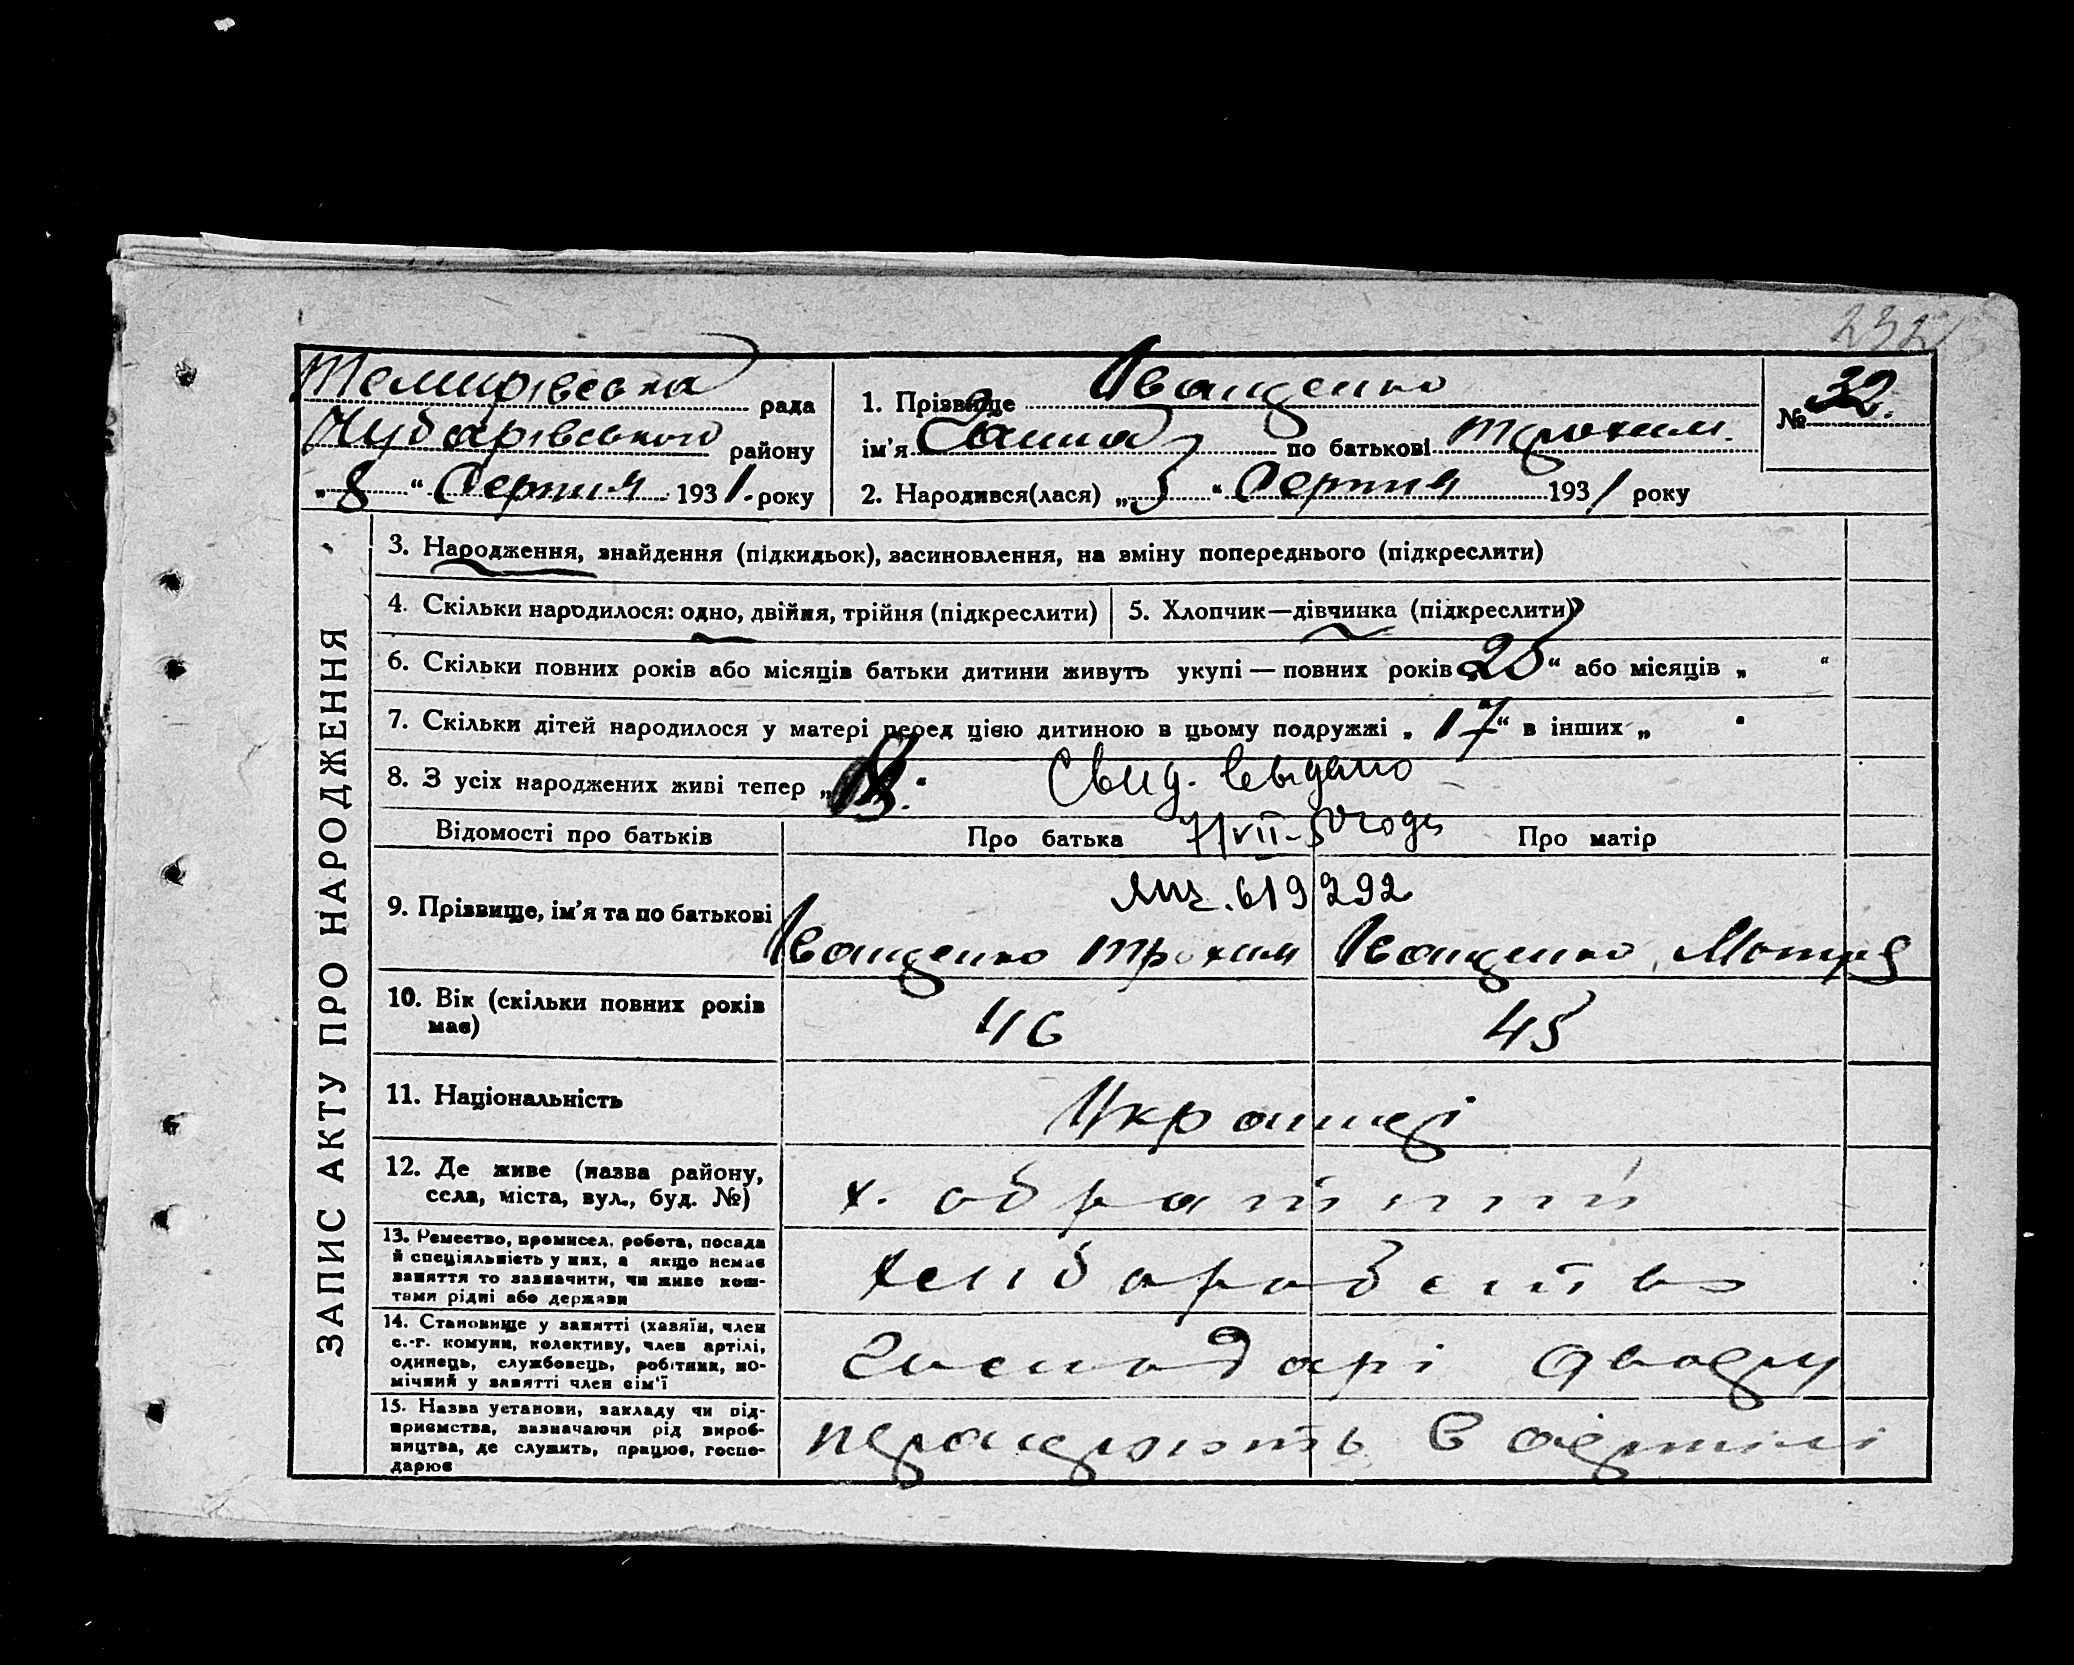 232
Темирівська рада
Чубарівського району
„8“ Серпня 1931. року
1. Прізвище Іващенко
ім'я Ганна по батькові Трохим.
2. Народився(лася) „5“ Серпня 1931 року
№ 32.
ЗАПИС АКТУ ПРО НАРОДЖЕННЯ
3. Народження, знайдення (підкидьок), засиновлення, на вміну попереднього (підкреслити)
4. Скільки народилося: одно, двійня, трійня (підкреслити)
5. Хлопчик—дівчинка (підкреслити)
6. Скільки повних років або місяців батьки дитини живуть укупі — повних років „25“ або місяців „ “
7. Скільки дітей народилося у матері перед цією дитиною в цьому подружжі „17“ в інших „
8. З усіх народжених живі тепер „8.
Свид. выдано
7/VII-50 года
ЯШ. 619292
Відомості про батьків
Про батька
Про матір
9. Прізвище, ім'я та по батькові
Іващенко Трохим
Іващенко Мотря
10. Вік (скільки повних років має)
46
45
11. Національність
Українці
12. Де живе (назва району, села, міста, вул., буд. №)
х. обратний
13. Ремество, промисел, робота, посада й спеціяльність у них, а якщо немає заняття то зазначити, чи живе коштами рідні або держави
хліборобство
14. Становище у занятті (хазяїн, член с.-г. комуни, колективу, член артілі, одинець, службовець, робітник, помічний у занятті член сім'ї
господарі двору
15. Назва установи, закладу чи підприємства, зазначаючи рід виробництва, де служить, працює, господарює
працюють в артілі